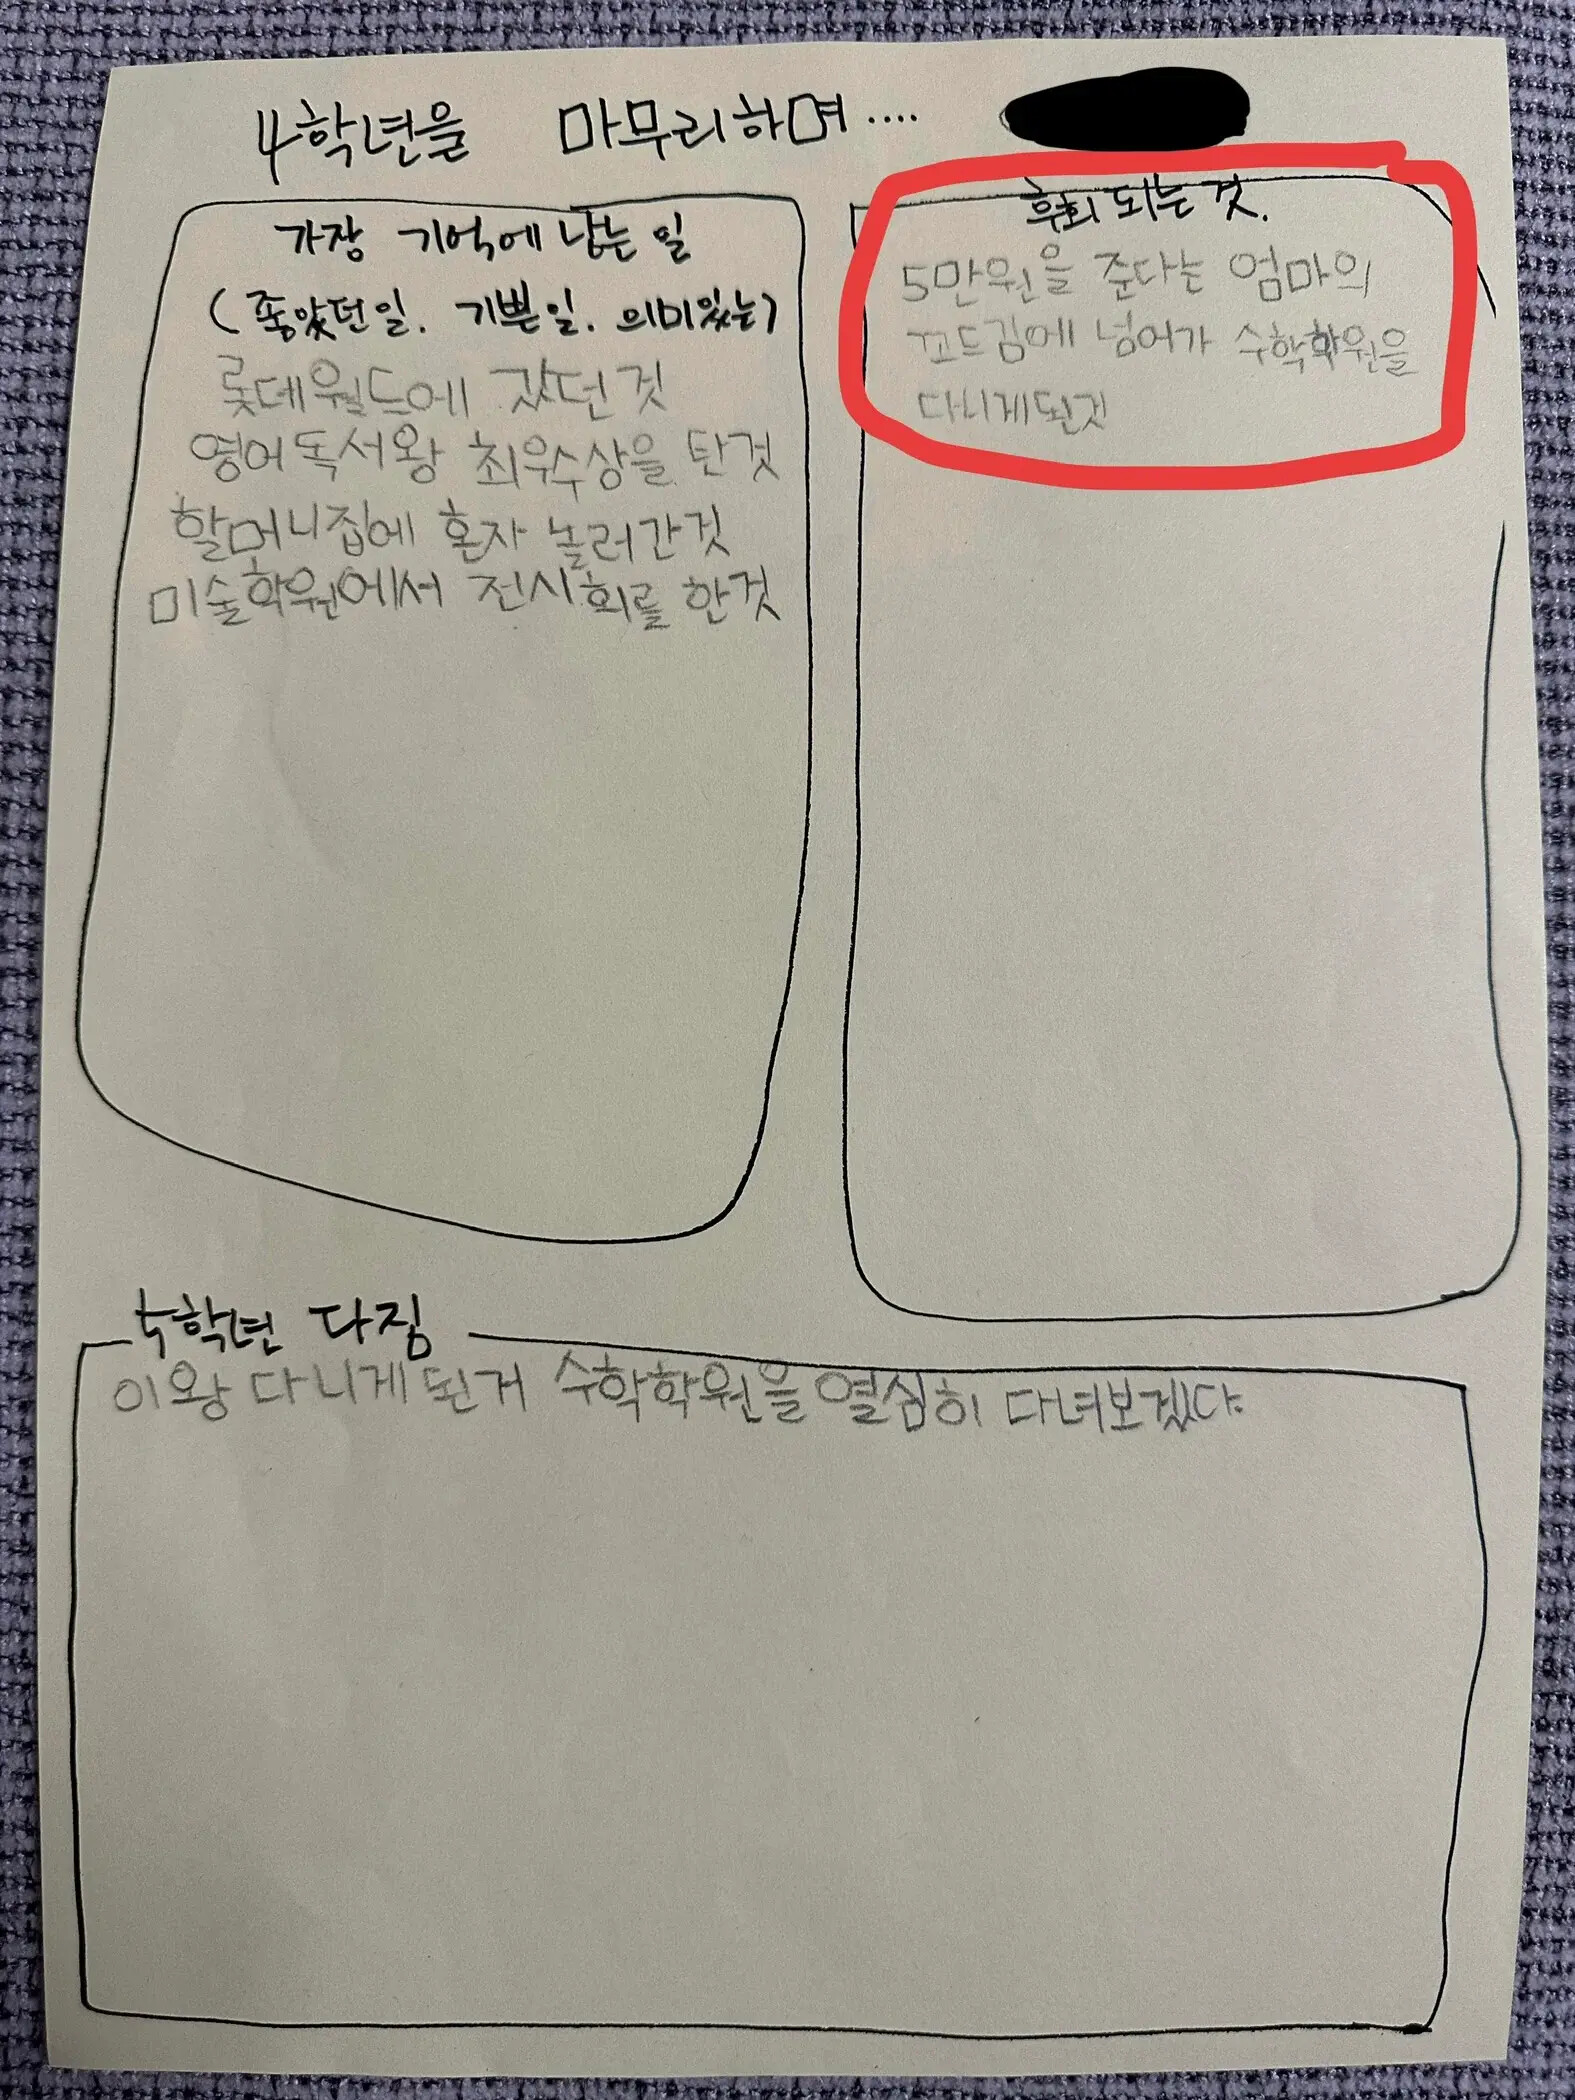 4학년을 마무리하며....
가장 기억에 남는 일
(좋았던일. 기쁜일. 의미있는)
롯데월드에 갔던것
영어독서왕 최우수상을 탄것
할머니집에 혼자 놀러간것
미술학원에서 전시회를 한것
후회 되는 것.
5만원을 준다는 엄마의
꼬드김에 넘어가 수학학원을
다니게된것
5학년 다짐
이왕 다니게된거 수학학원을 열심히 다녀보겠다.